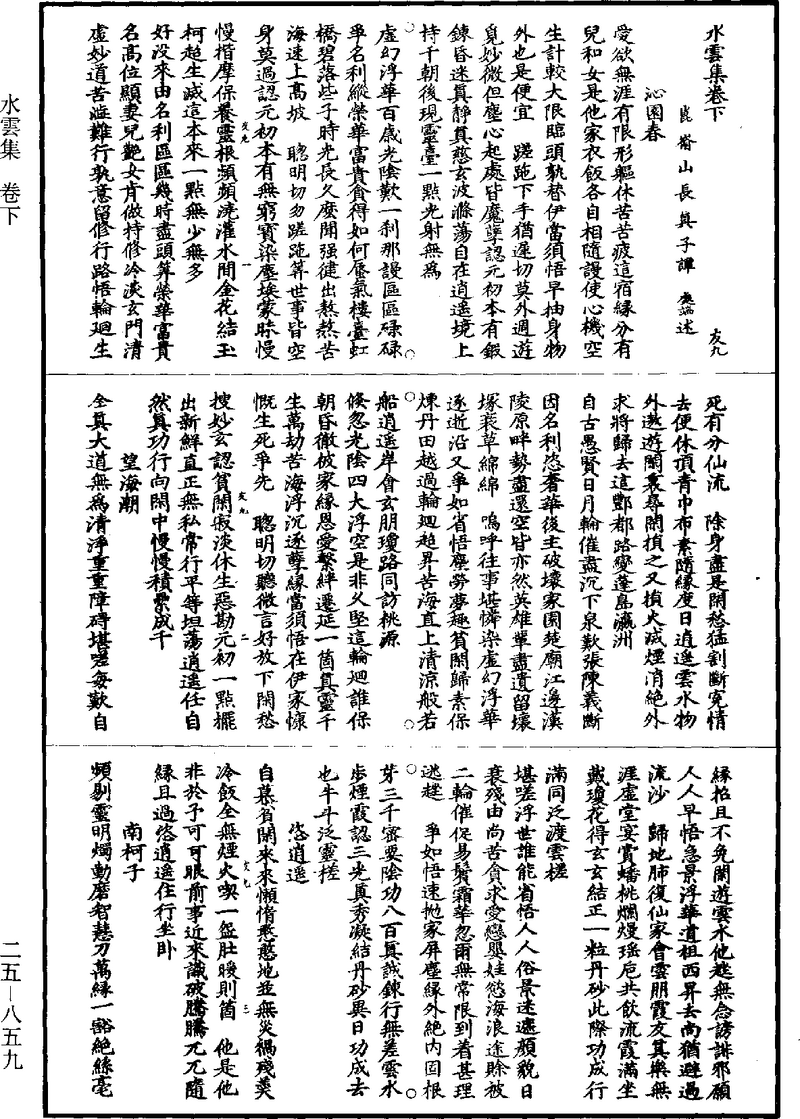 水雲集卷下
崑崙山長真子譚處端述
友九
沁園春
愛欲無涯有限形軀休苦苦疲這宿緣分有
兒和女是他家衣飯各自相隨謾使心機空
生計較大限臨頭孰替伊當須悟早抽身物
外也是便宜　蹉跎下手猶遲切莫外週遊
覓妙微但塵心起處皆魔孽認元初本有鍛
鍊昏迷真靜真慈玄波滌蕩自在逍遙境上
持千朝後現靈臺一點光射無為
虛幻浮華百歲光陰歎一剎那謾區區碌碌
爭名利縱榮華富貴貪得如何蜃氣樓臺虹
橋碧落些子時光長久麼閑強健出熬熬苦
海速上高坡　聰明切勿蹉跎筭世事皆空
身莫過認元初本有無窮寶染塵埃蒙昧慢
慢揩摩保養靈根頻頻澆灌水間金花結玉
柯超生滅這本來一點無少無多
好沒來由名利區區幾時盡頭筭榮華富貴
名高位顯妻兒艷女肯做持修冷淡玄門清
虛妙道苦澁難行孰意留修行路悟輪迴生
死有分仙流　除身盡是閑愁猛割斷寃情
去便休頂青巾布素隨緣度日逍遙雲水物
外遨遊閑裏尋閑損之又損火滅煙消絕外
求將歸去這酆都路變蓬島瀛洲
自古愚賢日月輪催盡沉下泉歎張陳義斷
因名利恣奢華後主破壞家園楚廟江邊漢
陵原畔勢盡還空皆亦然英雄輩盡遺留壞
塚衰草綿綿　嗚呼往事堪憐染虛幻浮華
逐逝沿又爭如省悟塵勞夢趣貧閑歸素保
煉丹田越過輪迴超昇苦海直上清涼般若
船逍遙岸會玄朋瓊路同訪桃源
倏忽光陰四大浮空是非久堅這輪迴誰保
朝昏徹被家緣恩愛繫絆遷延一箇真靈千
生萬劫苦海浮沉逐孽緣當須悟在伊家慷
慨生死爭先　聰明切聽微言好放下閑愁
搜妙玄認貧閑寂淡休生惡勘元初一點擺
出新鮮直正無私常行平等坦蕩逍遙任自
然真功行向閑中慢慢積累成千
望海潮
全真大道無為清淨重重障碍堪嗟每歎自
緣搯且不免閑遊雲水他趓無念諺誹邪願
人人早悟急景浮華道祖西昇去尚猶避過
流沙　歸地肺復仙家會雲朋霞友其樂無
涯虛堂宴賞蟠桃爛熳瑤巵共飲流霞滿坐
戴瓊花得玄玄結正一粒丹砂此際功成行
滿同泛渡雲槎
堪嗟浮世誰能省悟人人俗景迷遮顏貌日
衰殘由尚苦貪求愛戀嬰娃慾海浪途賒被
二輪催促易鬢霜華忽爾無常限到着甚理
迯趓　爭如悟速抛家屏塵緣外絕內固根
芽三千寄要陰功八百真誠鍊行無差雲水
步煙霞認三光真秀凝結丹砂異日功成去
也牛斗泛靈槎
恣逍遙
自慕貧閑來來懶惰憨憨地並無災禍殘羹
冷飯全無煙火喫一盌肚暖則箇　他是他
非於予可可眼前事近來識破騰騰兀兀隨
緣且過恣逍遙住行坐臥
南柯子
頻剔靈明燭動磨智慧刀萬緣一豁絕絲毫
友九　一
友九　二
友九　三
水雲集　卷下
二五－八五九